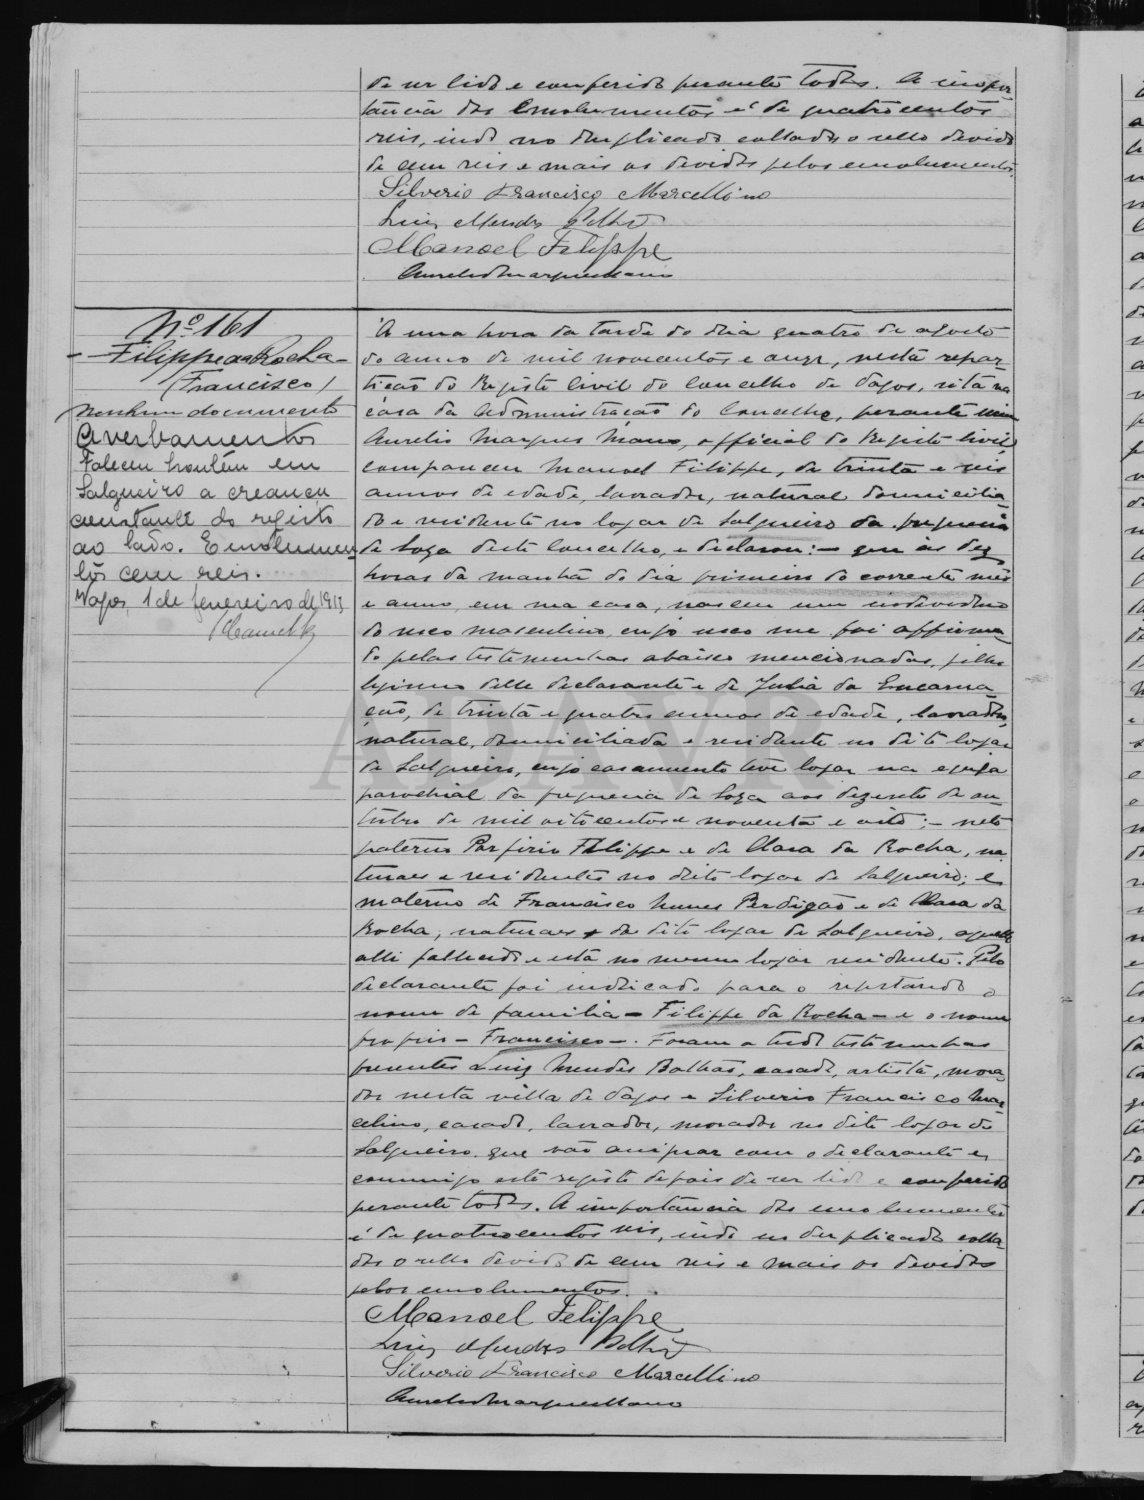 de ser lido e conferido perante todos. A impor-
tancia dos emolumentos é de quatrocentos
reis, indo no duplicado collados o sello devido
de cem reis e mais os devidos pelos emolumentos.
Silverio Francisco Marcellino
Luiz Mendes Bolhão
Manoel Filippe
Aurelio Marques Mano
Nº 161
- Filippe da Rocha -
(Francisco)
Nenhum documento
Averbamentos
Faleceu hontem em
Salgueiro a creança
constante do registo
ao lado. Emolumen-
tos cem reis.
Vagos, 1 de fevereiro de 1913
A' uma hora da tarde do dia quatro de agosto
do anno de mil novecentos e onze, nesta repar-
tição do Registo Civil do Concelho de Vagos, sita na
casa da Administração do Concelho, perante mim
Aurelio Marques Mano, official do Registo Civil,
compareceu Manoel Filippe, de trinta e seis
annos de edade, lavrador, natural domicilia-
do e residente no logar de Salgueiro da freguesia
de Soza deste Concelho, e declarou: - que ás dez
horas da manhã do dia primeiro do corrente mês
e anno, em sua casa, nasceu um individuo
do sexo masculino, cujo sexo me foi affirma-
do pelas testemunhas abaixo mencionadas, filho
legitimo delle declarante e de Julia da Encarna-
ção, de trinta e quatro annos de edade, lavradora,
natural, domiciliada e residente no dito logar
de Salgueiro, cujo casamento teve logar na egreja
parochial da freguesia de Soza aos dezesete de ou-
tubro de mil oitocentos e noventa e oito; - neto
paterno Porfirio Filippe e de Clara da Rocha, na-
turaes e residentes no dito logar de Salgueiro; e
materno de Francisco Nunes Perdigão e de Clara da
Rocha, naturaes do dito logar de Salgueiro, aquelle
alli fallecido e esta no mesmo logar residente. Pelo
declarante foi indicado para o registando o
nome de familia - Filippe da Rocha - e o nome
proprio - Francisco -. Foram a tudo testemunhas
presentes Luiz Mendes Bolhão, casado, artista, mora-
dor nesta villa de Vagos e Silverio Francisco Mar-
celino, casado, lavrador, morador no dito logar de
Salgueiro, que vão assignar com o declarante e
commigo este registo depois de ser lido e conferido
perante todos. A importancia dos emolumentos
é de quatrocentos reis, indo no duplicado colla-
dos o sello devido de cem reis e mais os devidos
pelos emolumentos.
Manoel Felippe
Luiz Mendes Bolhão
Silverio Francisco Marcellino
Aurelio Marques Mano